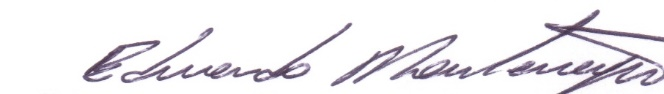 Eduardo Montenegro